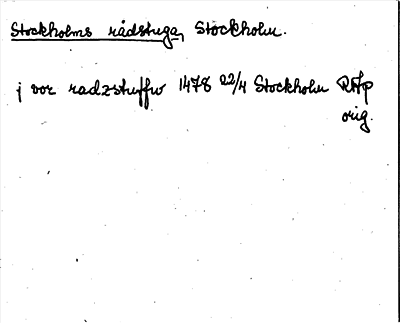 Stockholms rådstuga, Stockholm.
j vor radzstuffw 1478 22/4 Stockholm RAp
orig.